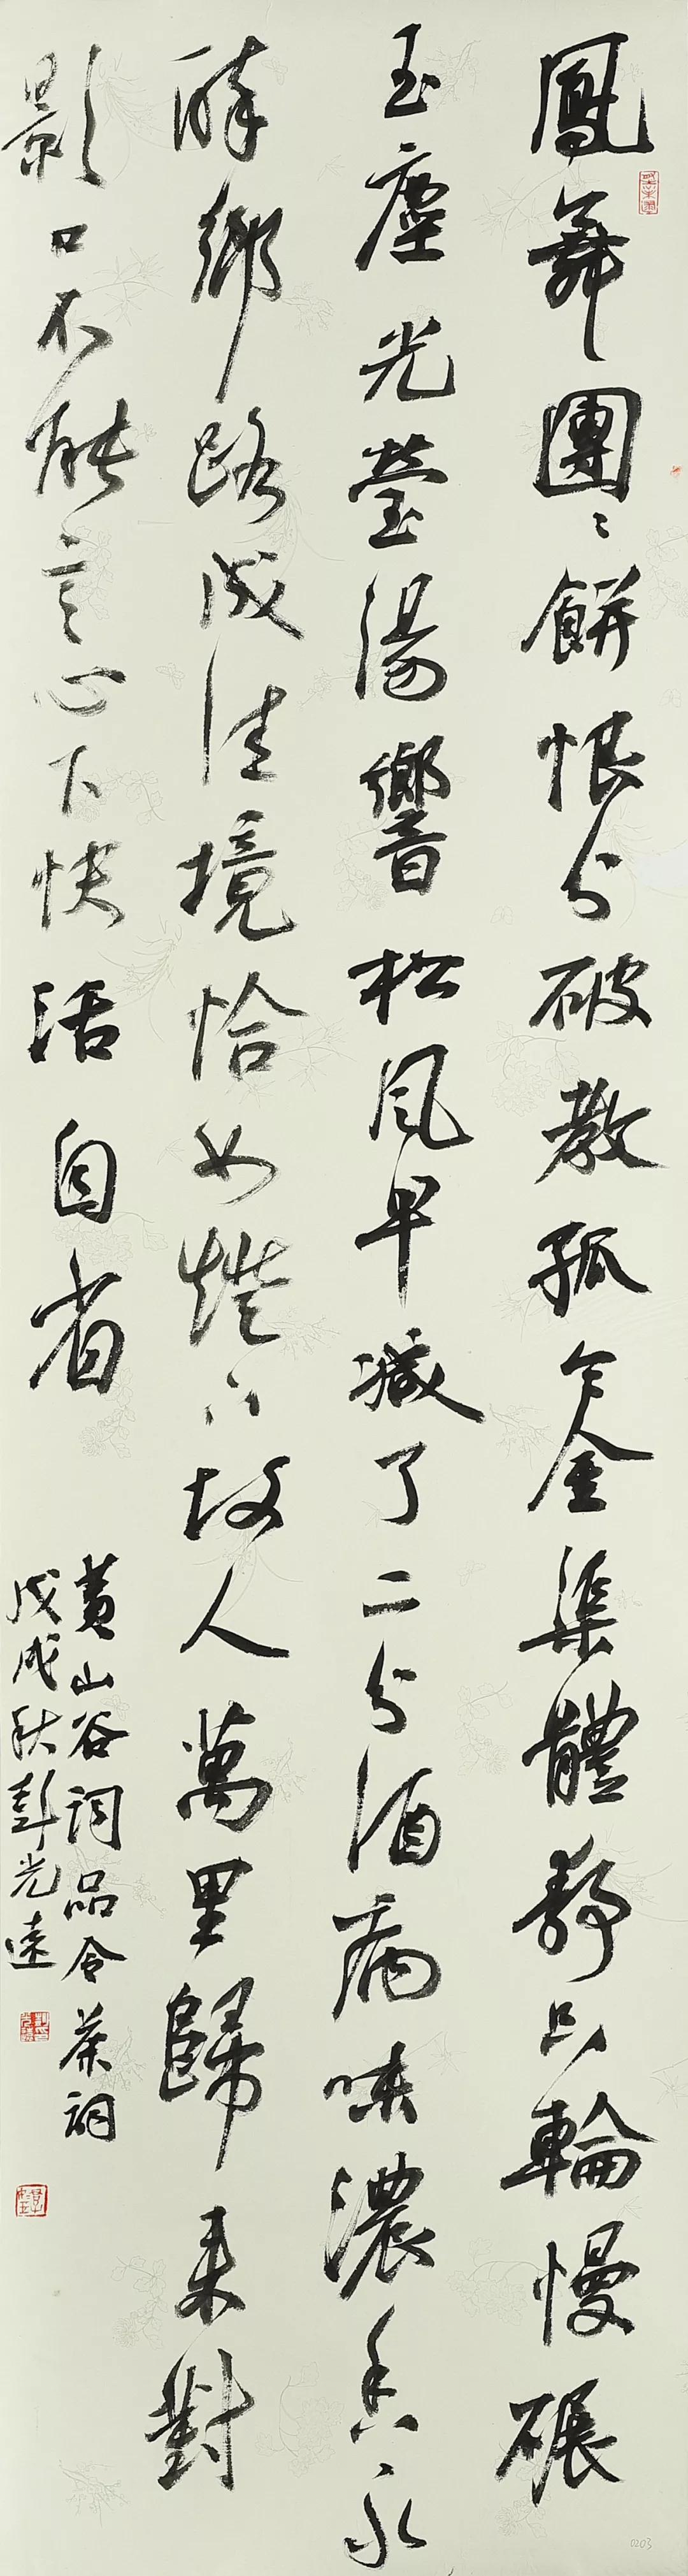 鳳舞團〻餅恨分破教孤令金渠體靜只輪慢碾
玉塵光瑩湯響松風早減了二分酒病味濃香永
醉鄉路成佳境恰如燈下故人萬里歸來對
影口不能言心下快活自省
黃山谷詞品令茶詞
戊戌秋彭光遠
0203